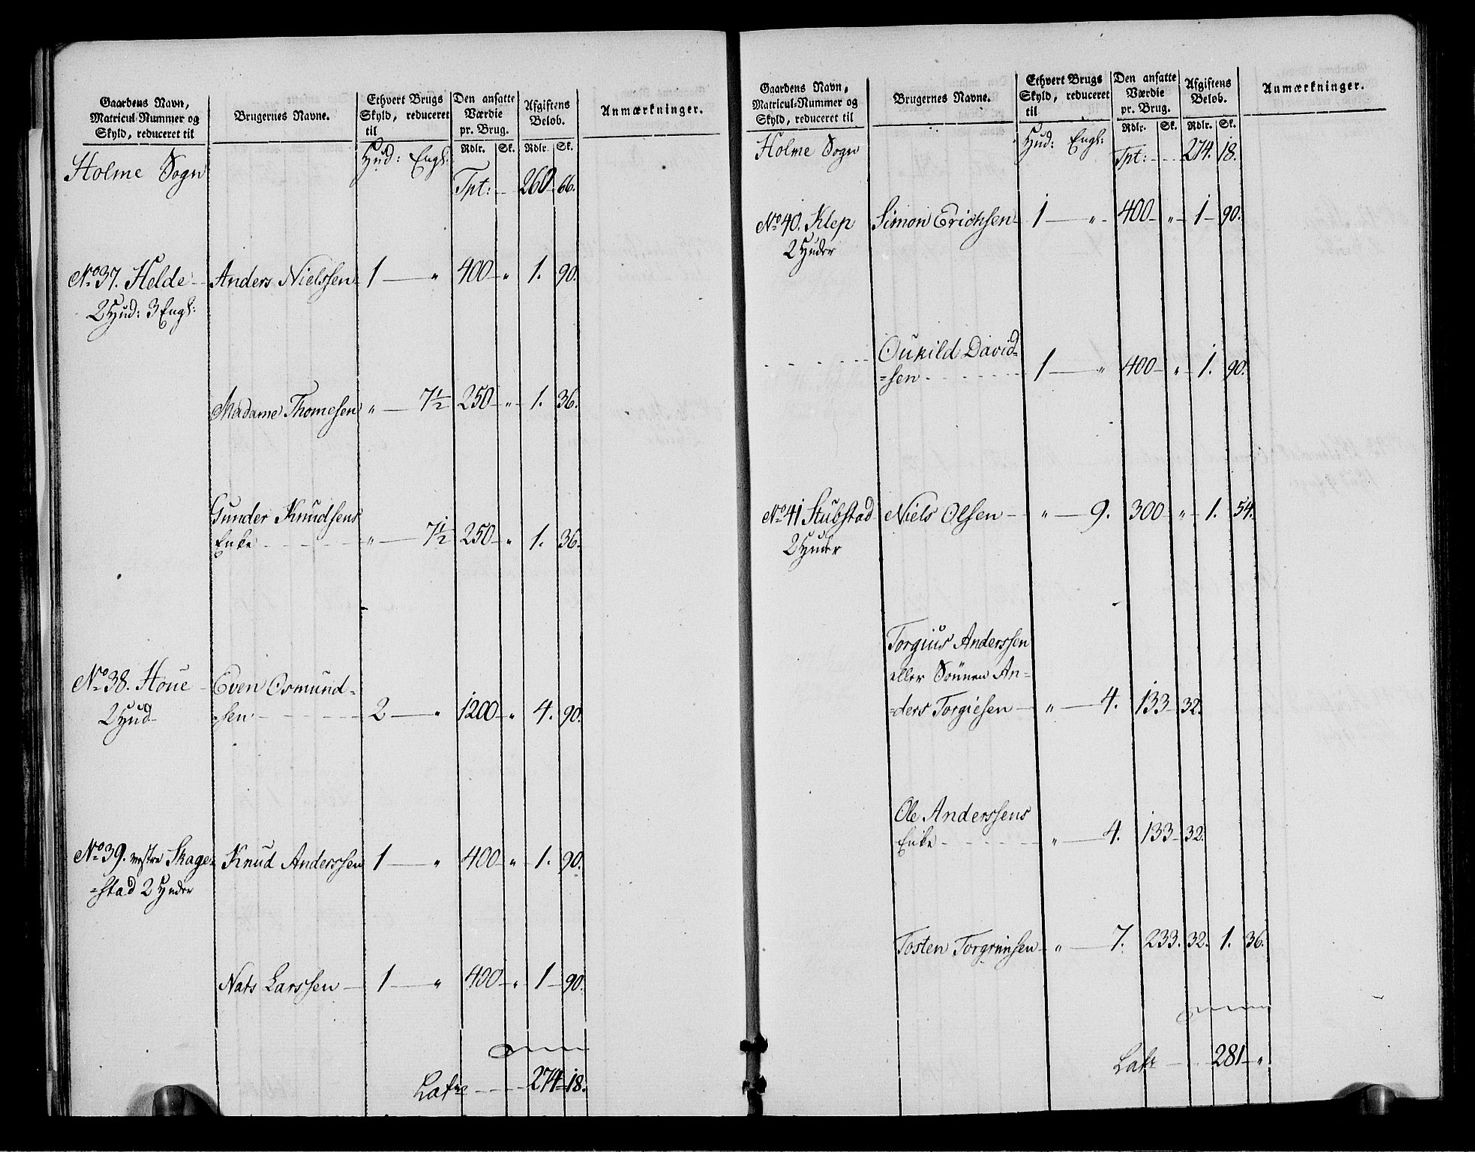 Gaardens Navn, Matricul-Nummer og Skyld, reduceret til | Brugernes Navne. | Ethvert Brugs Skyld, reduceret til | Den ansatte Værdie pr. Brug. | Afgiftens Beløb. | Anmærkninger.
Rdlr. Sk. Rdlr. Sk.
Holme Sogn Hud: Engl: Tpt: 260 66.
No 37. Helde Anders Nielssen 1 " 400 " 1. 90.
2 Hud: 3 Engl:
Madame Thomesen " 7½ 250 " 1. 36.
Gunder Knudsens
Enke " 7½ 250 " 1. 36.
No 38. Houe Even Osmund-
2 Hud sen 2 " 1200 " 4. 90.
No 39. vestre Skage- Knud Anderssen 1 " 400 " 1. 90.
stad 2 Huder
Nats Larssen 1 " 400 " 1 90.
Late 274 18.
Gaardens Navn, Matricul-Nummer og Skyld, reduceret til | Brugernes Navne. | Ethvert Brugs Skyld, reduceret til | Den ansatte Værdie pr. Brug. | Afgiftens Beløb. | Anmærkninger.
Rdlr. Sk. Rdlr. Sk.
Holme Sogn Hud: Engl: Tpt: 274. 18.
No 40. Klep Simon Erichsen 1 " 400 " 1 90.
2 Huder
Oukild David-
sen 1 " 400 " 1. 90.
No 41 Stubstad Niels Olsen " 9. 300 " 1. 54.
2 Huder
Torgius Anderssen
eller Sønnen An-
ders Torgiesen " 4. 133 32.
Ole Anderssens
Enke " 4. 133 32.
Tosten Torgrimsen " 7. 233. 32. 1. 36.
Late 281 "